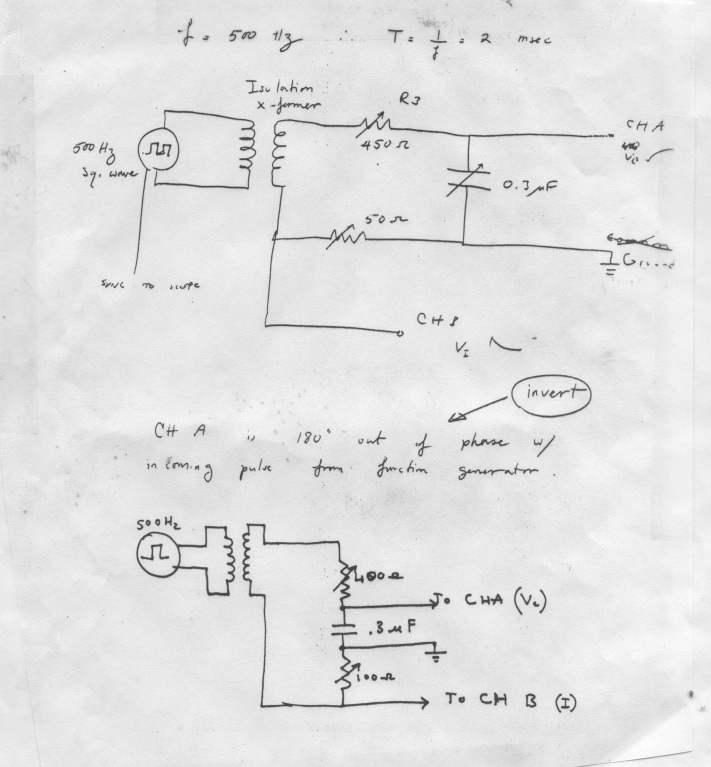 f = 500 Hz ∴ T = 1/f = 2 msec
Isolation
x-former
R3
450 Ω
CH A
Vc
500 Hz
Sq. wave
0.3 μF
50 Ω
SYNC TO SCOPE
CH B
VI
invert
CH A is 180° out of phase w/
incoming pulse from function generator.
500Hz
400Ω
To CHA (Vc)
.3 μF
100Ω
To CH B (I)